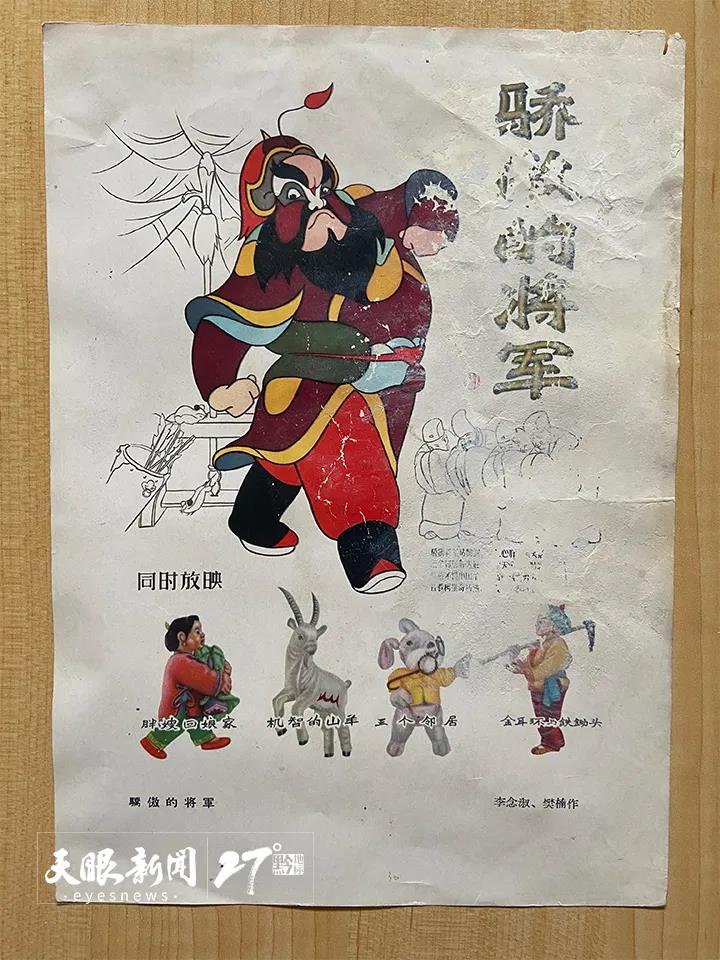 骄傲的将军
同时放映
胖嫂回娘家
机智的山羊
三个邻居
金耳环与铁锄头
驕傲的将軍
李念淑、樊楠作
天眼新闻 27° 黔地标
·eyesnews·
30